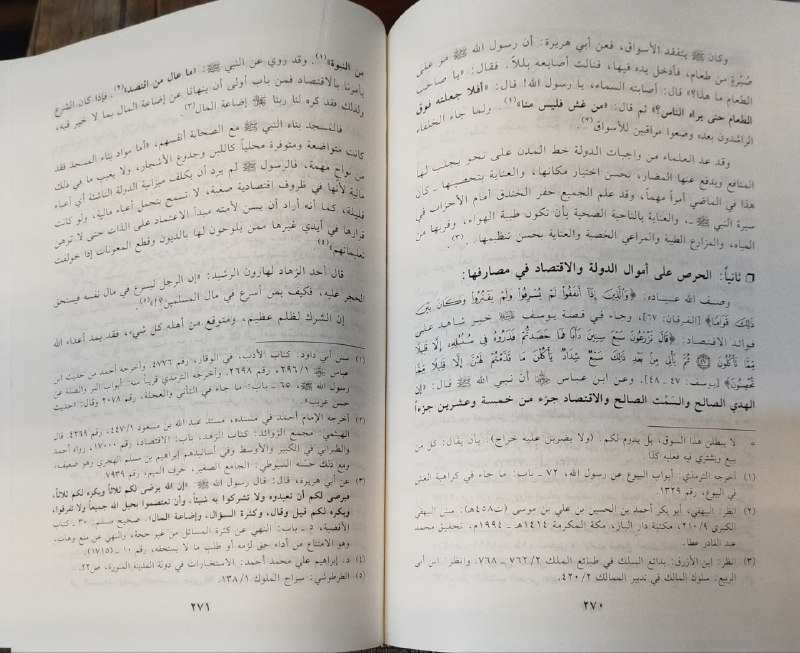 وكان ﷺ يتفقد الأسواق، فعن أبي هريرة: أن رسول الله ﷺ مر على
صُبْرةٍ من طعام، فأدخل يده فيها، فنالت أصابعه بللاً. فقال: «يا صاحب
الطعام ما هذا؟» قال: أصابته السماء، يا رسول الله! قال: «أفلا جعلته فوق
الطعام حتى يراه الناس؟» ثم قال: «من غش فليس منا»(١). ولما جاء الخلفاء
الراشدون بعده وضعوا مراقبين للأسواق(٢).
وقد عد العلماء من واجبات الدولة خط المدن على نحو يجلب لها
المنافع ويدفع عنها المضار، بحسن اختيار مكانها، والعناية بتحصينها ـ كان
هذا في الماضي أمراً مهماً، وقد علم الجميع حفر الخندق أمام الأحزاب في
سيرة النبي ﷺ ـ، والعناية بالناحية الصحية بأن تكون طيبة الهواء، وقربها من
المياه، والمزارع الطيبة والمراعي الخصبة والعناية بحسن تنظيمها.(٣)
❒ ثانياً: الحرص على أموال الدولة والاقتصاد في مصارفها:
وصف الله عباده: ﴿وَالَّذِينَ إِذَا أَنفَقُوا لَمْ يُسْرِفُوا وَلَمْ يَقْتُرُوا وَكَانَ بَيْنَ
ذَلِكَ قَوَامًا﴾ [الفرقان: ٦٧]، وجاء في قصة يوسف ﷺ خير شاهد على
فوائد الاقتصاد: ﴿قَالَ تَزْرَعُونَ سَبْعَ سِنِينَ دَأَبًا فَمَا حَصَدتُّمْ فَذَرُوهُ فِي سُنبُلِهِ إِلَّا قَلِيلًا
مِّمَّا تَأْكُلُونَ ﴿٤٧﴾ ثُمَّ يَأْتِي مِن بَعْدِ ذَلِكَ سَبْعٌ شِدَادٌ يَأْكُلْنَ مَا قَدَّمْتُمْ لَهُنَّ إِلَّا قَلِيلًا مِّمَّا
تُحْصِنُونَ﴾ [يوسف: ٤٧ ـ ٤٨]. وعن ابن عباس ﷺ أن نبي الله ﷺ قال: «إن
الهدي الصالح والسَّمْت الصالح والاقتصاد جزء من خمسة وعشرين جزءاً
= لا يبطلن هذا السوق، بل يدوم لكم. (ولا يضربن عليه خراج): بأن يقال: كل من
يبيع ويشتري فيه فعليه كذا.
(١) أخرجه الترمذي: أبواب البيوع عن رسول الله، ٧٢ ـ باب: ما جاء في كراهية الغش
في البيوع، رقم ١٣٢٩.
(٢) انظر: البيهقي، أبو بكر أحمد بن الحسين بن علي بن موسى (ت٤٥٨هـ): سنن البيهقي
الكبرى ٢١٠/٩، مكتبة دار الباز، مكة المكرمة ١٤١٤هـ ـ ١٩٩٤م، تحقيق محمد
عبد القادر عطا.
(٣) انظر: ابن الأزرق: بدائع السلك في طبائع الملك ٧٦٢/٢ ـ ٧٦٨. وانظر: ابن أبي
الربيع: سلوك المالك في تدبير الممالك ٤٢٠/٢.
٢٧٠
من النبوة»(١). وقد روي عن النبي ﷺ: «ما عال من اقتصد»(٢). فإذا كان الشرع
يأمرنا بالاقتصاد فمن باب أولى أن ينهانا عن إضاعة المال بما لا خير فيه،
ولذلك فقد كره لنا ربنا إضاعة المال(٣).
فالمسجد بناه النبي ﷺ مع الصحابة أنفسهم، «أما مواد بناء المسجد فقد
كانت متواضعة ومتوفرة محلياً كاللبن وجذوع الأشجار، ولا يعيب ما في ذلك
من نواح مهمة، فالرسول ﷺ لم يرد أن يكلف ميزانية الدولة الناشئة أي أعباء
مالية لأنها في ظروف اقتصادية صعبة، لا تسمح بتحمل أعباء مالية، ولو كانت
قليلة، كما أنه أراد أن يسن لأمته مبدأ الاعتماد على الذات حتى لا ترهن
قرارها في أيدي غيرها ممن يلوحون لها بالديون وقطع المعونات إذا خولفت
تعليماتهم»(٤)
قال أحد الزهاد لهارون الرشيد: «إن الرجل ليسرع في مال نفسه فيستحق
الحجر عليه، فكيف بمن أسرع في مال المسلمين؟!»(٥).
إن الشرك لظلم عظيم، ومتوقع من أهله كل شيء، فقد يمد أعداء الله
(١) سنن أبي داود: كتاب الأدب، في الوقار، رقم ٤٧٧٦. وأخرجه أحمد من حديث ابن
عباس ٢٩٦/١، رقم ٢٦٩٨. وأخرجه الترمذي قريباً منه: أبواب البر والصلة عن
رسول الله ﷺ، ٦٥ ـ باب: ما جاء في التأني والعجلة، رقم ٢٠٧٨ وقال: «حديث
حسن غريب»
(٢) أخرجه الإمام أحمد في مسنده، مسند عبد الله بن مسعود ٤٤٧/١، رقم ٤٢٦٩. قال
الهيثمي: مجمع الزوائد: كتاب الزهد، باب: الاقتصاد، رقم ١٧٠٠٠، رواه أحمد
والطبراني في الكبير والأوسط وفي أسانيدهم إبراهيم بن مسلم الهجري وهو ضعيف،
ومع ذلك حسَّنه السيوطي: الجامع الصغير، حرف الميم، رقم ٧٩٣٩.
(٣) عن أبي هريرة، قال: قال رسول الله ﷺ: «إن الله يرضى لكم ثلاثاً ويكره لكم ثلاثاً،
فيرضى لكم أن تعبدوه ولا تشركوا به شيئاً. وأن تعتصموا بحبل الله جميعاً ولا تفرقوا،
ويكره لكم قيل وقال، وكثرة السؤال، وإضاعة المال». صحيح مسلم: ٣٠ ـ كتاب
الأقضية، ٥ ـ باب: النهي عن كثرة المسائل من غير حاجة، والنهي عن منع وهات،
وهو الامتناع من أداء حق لزمه أو طلب ما لا يستحقه، رقم ١٠ ـ (١٧١٥).
(٤) د. إبراهيم علي محمد أحمد: الاستخبارات في دولة المدينة المنورة، ص٢٢.
(٥) الطرطوشي: سراج الملوك ١٣٨/١.
٢٧١